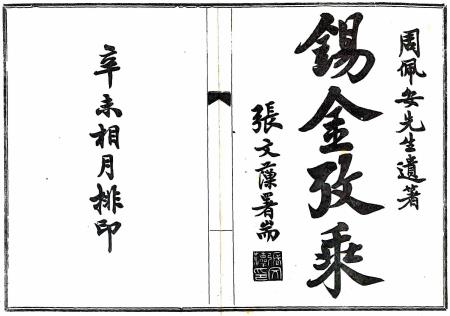 周佩安先生遺著
錫金攷乘
張文藻署耑
辛未相月排印